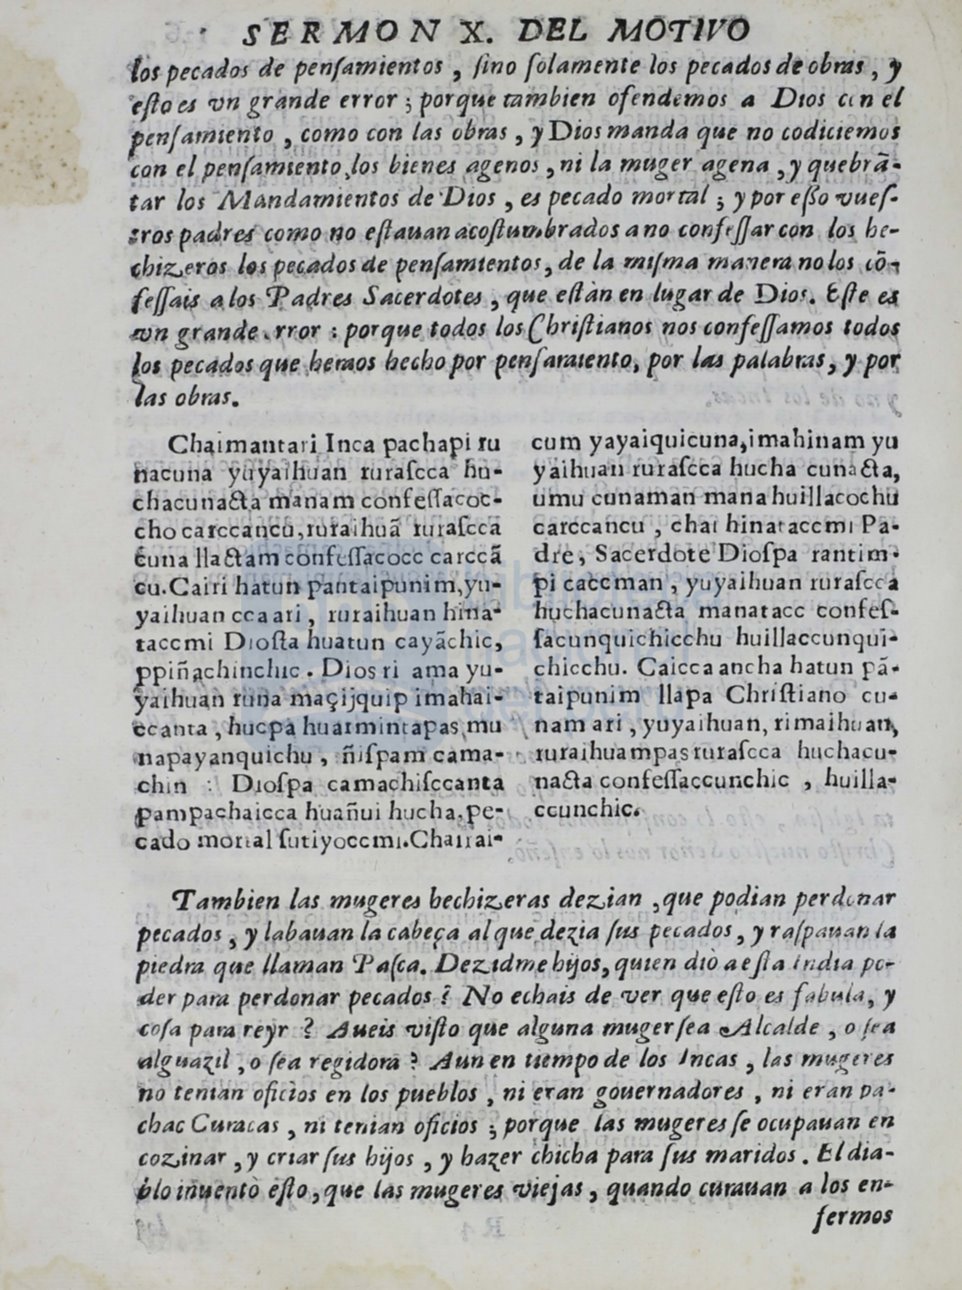 SERMON X. DEL MOTIVO
los pecados de penſamientos, ſino ſolamente los pecados de obras, y
eſto es vn grande error; porque tambien ofendemos a Dios con el
penſamiento, como con las obras, y Dios manda que no codiciemos
con el penſamiento los bienes agenos, ni la muger agena, y quebrã-
tar los Mandamientos de Dios, es pecado mortal; y por eſſo vueſ-
tros padres como no eſtauan acoſtumbrados a no confeſſar con los he-
chizeros los pecados de penſamientos, de la miſma manera no los cõ-
feſſais a los Padres Sacerdotes, que eſtàn en lugar de Dios. Eſte es
vn grande error: porque todos los Chriſtianos nos confeſſamos todos
los pecados que hemos hecho por penſamiento, por las palabras, y por
las obras.
Chaimantari Inca pachapi ru
nacuna yuyaihuan ruraſcca hu-
chacunacta manam confeſſacoc-
cho carccancu, ruraihuã ruraſcca
cuna llactam confeſſacocc carccã
cu. Cairi hatun pantaipunim, yu-
yaihuan cca ari, ruraihuan hina-
taccmi Dioſta huatun cayãchic,
ppiñachinchic. Dios ri ama yu-
yaihuan runa maçijquip imahai-
ccanta, hucpa huarmintapas mu
napayanquichu, ñiſpam cama-
chin: Dioſpa camachiſccanta
pampachaicca huañui hucha, pe-
cado mortal ſutiyoccmi. Chairai-
cum yayaiquicuna, imahinam yu
yaihuan ruraſcca hucha cunacta,
umu cunaman mana huillacochu
carccancu, chai hinataccmi Pa-
dre, Sacerdote Dioſpa rantim-
pi caccman, yuyaihuan ruraſcca
huchacunacta manatacc confeſ-
ſacunquichicchu huillaccunqui-
chicchu. Caicca ancha hatun pã-
taipunim llapa Chriſtiano cu-
nam ari, yuyaihuan, rimaihuan,
ruraihuampas ruraſcca huchacu-
nacta confeſſaccunchic, huilla-
ccunchic.
Tambien las mugeres hechizeras dezian, que podian perdonar
pecados, y labauan la cabeça al que dezia ſus pecados, y raſpauan la
piedra que llaman Paſca. Dezidme hijos, quien diò a eſta India po-
der para perdonar pecados? No echais de ver que eſto es fabula, y
coſa para reyr? Aueis viſto que alguna muger ſea Alcalde, o ſea
alguazil, o ſea regidora? Aun en tiempo de los Incas, las mugeres
no tenian oficios en los pueblos, ni eran gouernadores, ni eran pa-
chac Curacas, ni tenian oficios; porque las mugeres ſe ocupauan en
cozinar, y criar ſus hijos, y hazer chicha para ſus maridos. El dia-
blo inuentò eſto, que las mugeres viejas, quando curauan a los en-
fermos